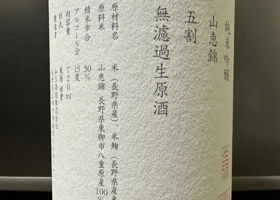 純米吟醸
山恵錦
五割
無濾過生原酒
原材料名 米(長野県産米)米麹(長野県産米)
原料米 山恵錦 長野県東御市八重原産100%
精米歩合 50%
アルコール分 15度
内容量 720ml